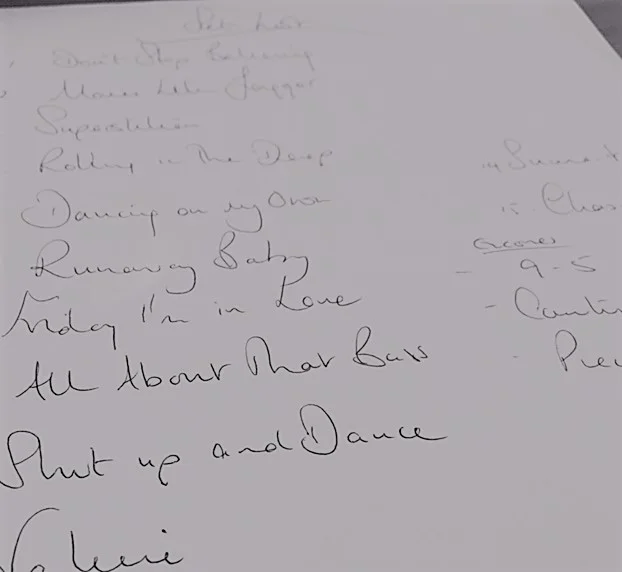 Set List
Don't Stop Believing
Moves Like Jagger
Superstition
Rolling in The Deep
Dancing on my Own
Runaway Baby
Friday I'm in Love
All About That Bass
Shut up and Dance
Valerie
14 Summer
15 Chas
Encores
- 9-5
- Cant
- Pre